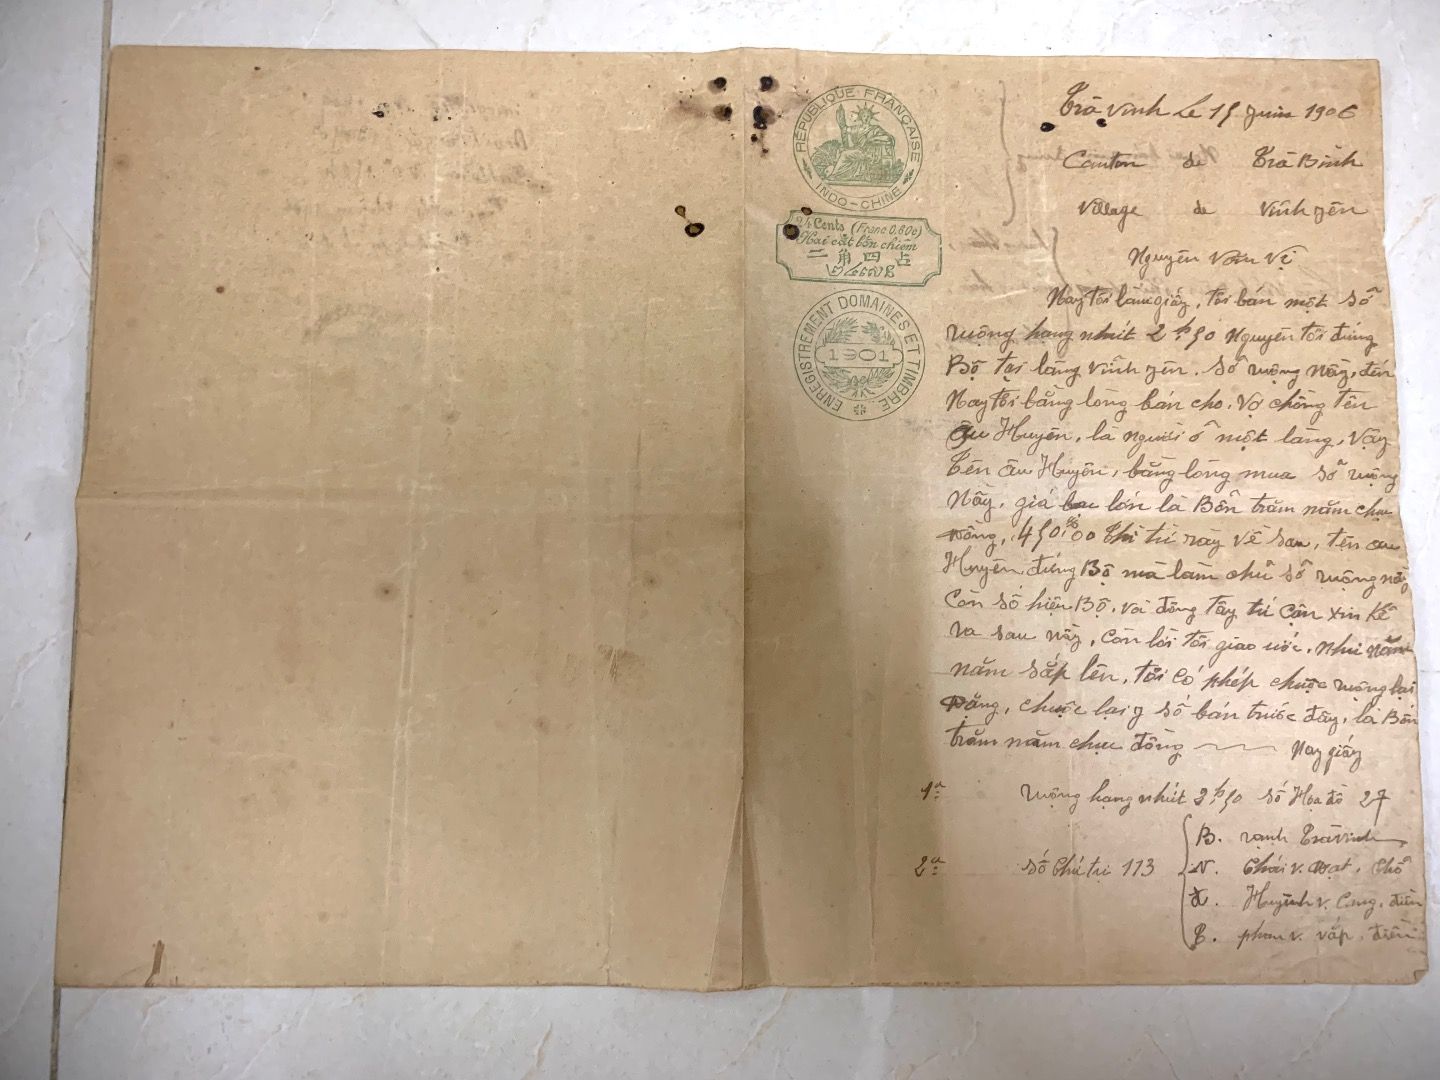 RÉPUBLIQUE FRANÇAISE
INDO-CHINE
24 Cents (Franc 0,60c)
Hai cắt bốn chiêm
二角四占
ENREGISTREMENT DOMAINES ET TIMBRE
1901
Trà Vinh Le 15 Juin 1906
Canton de Trà Bình
Village de Vĩnh Yên
Nguyễn Văn Vị
Nay tôi làm giấy, tôi bán một sổ
ruộng hạng nhứt 2h50 Nguyên tôi đứng
Bộ tại làng Vĩnh Yên. Sổ ruộng nầy, đến
Nay tôi bằng lòng bán cho, vợ chồng tên
âu Huyên, là người ở một làng, vậy
tên âu Huyên, bằng lòng mua sổ ruộng
Nầy, giá lớn là Bốn trăm năm chục
đồng, 450$00 thì từ rày về sau, tên âu
Huyên, đứng Bộ mà làm chủ sổ ruộng nầy
Còn số hiệu Bộ, và đông tây tứ cận xin kể
ra sau nầy, Còn lời tôi giao ước, như năm
năm sắp lên, tôi có phép chuộc ruộng lại
đặng, chuộc lại y số bán trước đây, là Bốn
trăm năm chục đồng ~~ Nay giấy
1º: ruộng hạng nhứt 2h50 số Họa đồ 27
2º: số Chú tri 113
B. rạnh Trà Vinh
N. Thái V. Đạt, thổ
đ. Huỳnh V. Cung, điền
T. phan V. Vấp, điền